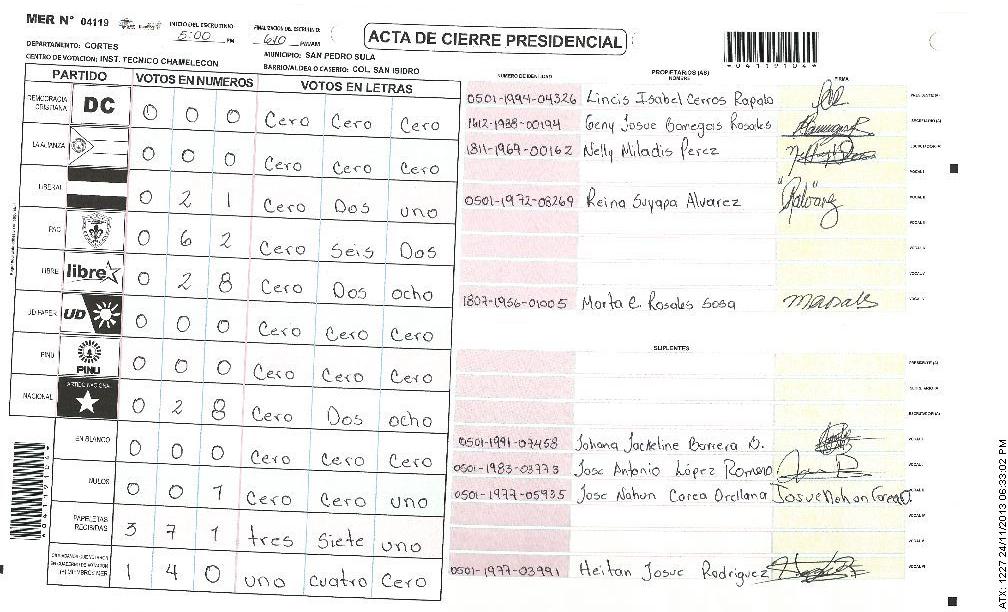 MER N° 04119
INICIO DEL ESCRUTINIO 5:00 PM
FINALIZACION DEL ESCRUTINIO 610 PM/AM
ACTA DE CIERRE PRESIDENCIAL
*04119104*
DEPARTAMENTO: CORTES
MUNICIPIO: SAN PEDRO SULA
CENTRO DE VOTACION: INST. TECNICO CHAMELECON
BARRIO/ALDEA O CASERIO: COL. SAN ISIDRO
PARTIDO VOTOS EN NUMEROS VOTOS EN LETRAS
DEMOCRACIA CRISTIANA DC 0 0 0 Cero Cero Cero
LA ALIANZA 0 0 0 Cero Cero Cero
LIBERAL 0 2 1 Cero Dos uno
PAC 0 6 2 Cero Seis Dos
LIBRE libre 0 2 8 Cero Dos ocho
UD PAPER UD 0 0 0 Cero Cero Cero
PINU PINU 0 0 0 Cero Cero Cero
NACIONAL PARTIDO NACIONAL 0 2 8 Cero Dos ocho
EN BLANCO 0 0 0 Cero Cero Cero
NULOS 0 0 1 Cero Cero uno
PAPELETAS RECIBIDAS 3 7 1 tres Siete uno
CIUDADANOS QUE VOTARON EN CUADERNO DE VOTACION (+) MIEMBROS MER 1 4 0 uno cuatro Cero
NUMERO DE IDENTIDAD PROPIETARIOS (AS) NOMBRE FIRMA
0501-1994-04326 Lincis Isabel Cerros Rapalo PRESIDENTE (A)
1612-1988-00194 Geny Josue Banegas Rosales SECRETARIO (A)
1811-1969-00162 Nelly Miladis Perez ESCRUTADOR (A)
VOCAL I
0501-1972-08269 Reina Suyapa Alvarez VOCAL II
VOCAL III
VOCAL IV
VOCAL V
1807-1956-01005 Marta E. Rosales Sosa VOCAL VI
SUPLENTES
PRESIDENTE (A)
SECRETARIO (A)
ESCRUTADOR (A)
0501-1991-07458 Johana Jackeline Barrera D. VOCAL I
0501-1983-03773 Jose Antonio López Romero VOCAL II
0501-1977-05935 Jose Nahun Carea Orellana VOCAL III
VOCAL IV
VOCAL V
0501-1977-03991 Heitan Josue Rodriguez VOCAL VI
*04119104*
ATX: 1227 24/11/2013 06:33:02 PM